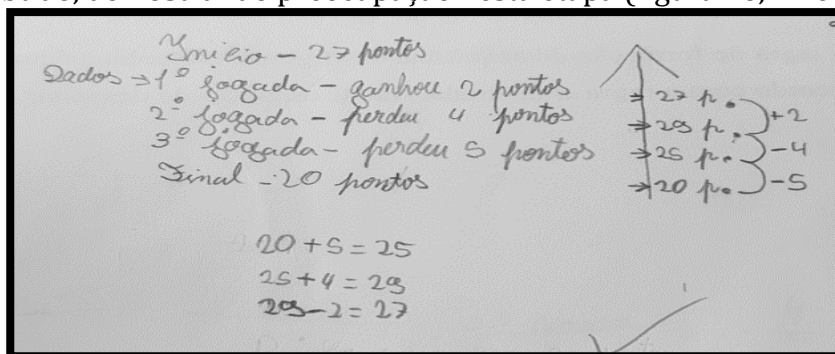 Início - 27 pontos
Dados → 1º jogada - ganhou 2 pontos
2º jogada - perdeu 4 pontos
3º jogada - perdeu 5 pontos
Final - 20 pontos
→ 27 p.
→ 29 p.
→ 25 p.
→ 20 p.
+2
-4
-5
20 + 5 = 25
25 + 4 = 29
29 - 2 = 27